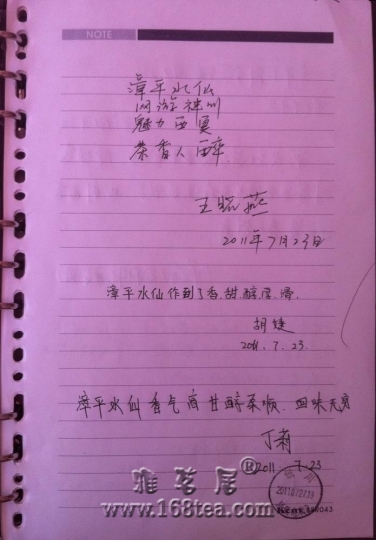 NOTE
漳平水仙
网游神州
魅力西夏
茶香人醉
王晓燕
2011年7月23日
漳平水仙作到了香.甜.醇.厚.滑.
胡婕
2011.7.23
漳平水仙香气高甘醇柔顺.回味无穷
丁莉
2011.7.23
雅茗居®
www.168tea.com